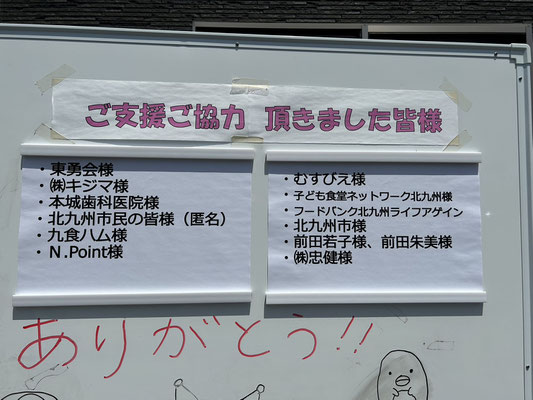 ご支援ご協力 頂きました皆様
・東勇会様
・㈱キジマ様
・本城歯科医院様
・北九州市民の皆様（匿名）
・九食ハム様
・N.Point様
・むすびえ様
・子ども食堂ネットワーク北九州様
・フードバンク北九州ライフアゲイン
・北九州市様
・前田若子様、前田朱美様
・㈱忠健様
ありがとう!!